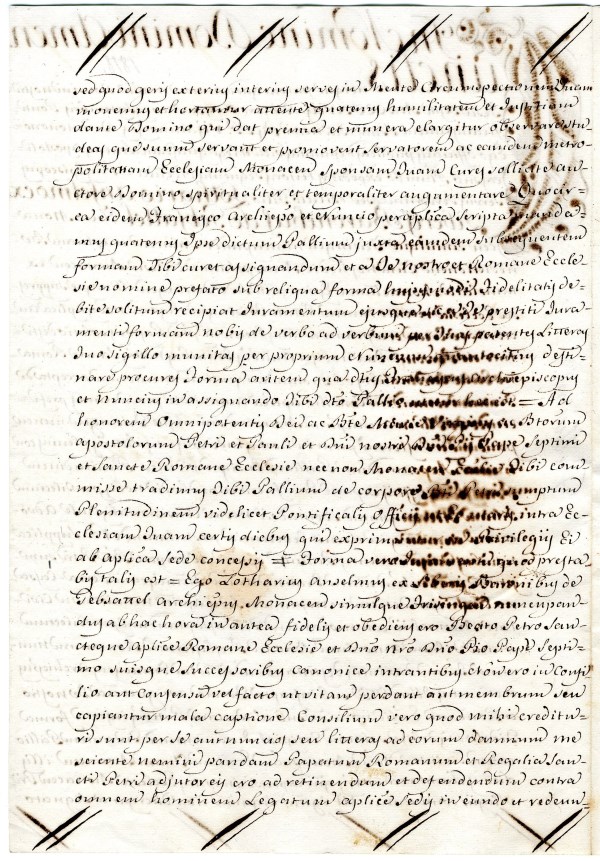 sed quod geris exterius interius serves in Mente Circumspectionem Tuam
monemus et hortamur attente quatenus humilitatem et Justitiam
dante Domino qui dat premia et munera elargitur observare stu-
deas que suum servant et promovent servatorem ac eamdem Metro-
politanam Ecclesiam Monacen Sponsam Tuam Cures sollicite au-
ctore Domino spiritualiter et temporaliter augumentare Quocir-
ca eidem Francisco Archiepo et Nuncio per aplica Scripta manda-
mus quatenus Ipse dictum Pallium juxta eamdem subsequentem
formam Tibi curet assignandum et a Te nostro et Romane Eccle-
sie nomine prefato sub reliqua forma Fidelitatis de-
bite solitum recipiat Juramentum prestiti Jura-
menti formam nobis de verbo ad verbum per Tuas patentes Litteras
Tuo sigillo munitas per proprium Nuncium desti-
nare procures Forma autem qua dictus Archiepiscopus
et Nuncius in assignando Tibi dto Pallio = Ad
honorem Omnipotentis Dei ac Bte Marie Btorum
apostolorum Petri et Pauli et Dni nostri Pape Septimi
et Sancte Romane Ecclesie nec non Monacen Tibi com
misse tradimus Tibi Pallium de corpore Bti Petri sumptum
Plenitudinem videlicet Pontificalis Officii intra Ec-
clesiam Tuam certis diebus qui exprimuntur Privilegiis Ei
ab aplica Sede concessis = Forma vero presta-
bis talis est = Ego Lotharius Anselmus ex Liberis Baronibus de
Gebsattel Archiepus Monacen simulque
dus ab hac hora in antea fidelis et obediens ero Beato Petro San-
cteque aplice Romane Ecclesie et Dno Nro Dno Pio Pape Septi-
mo suisque successoribus Canonice intrantibus Non ero in Consi-
lio aut Consensu vel facto ut vitam perdant aut membrum seu
capiantur mala captione Consilium vero quod mihi creditu-
ri sunt per se aut nuncios seu litteras ad eorum damnum me
sciente nemini pandam Papatum Romanum et Regalia San-
cti Petri adjutor eis ero ad retinendum et defendendum contra
omnem hominem Legatum aplice Sedis in eundo et redeun-